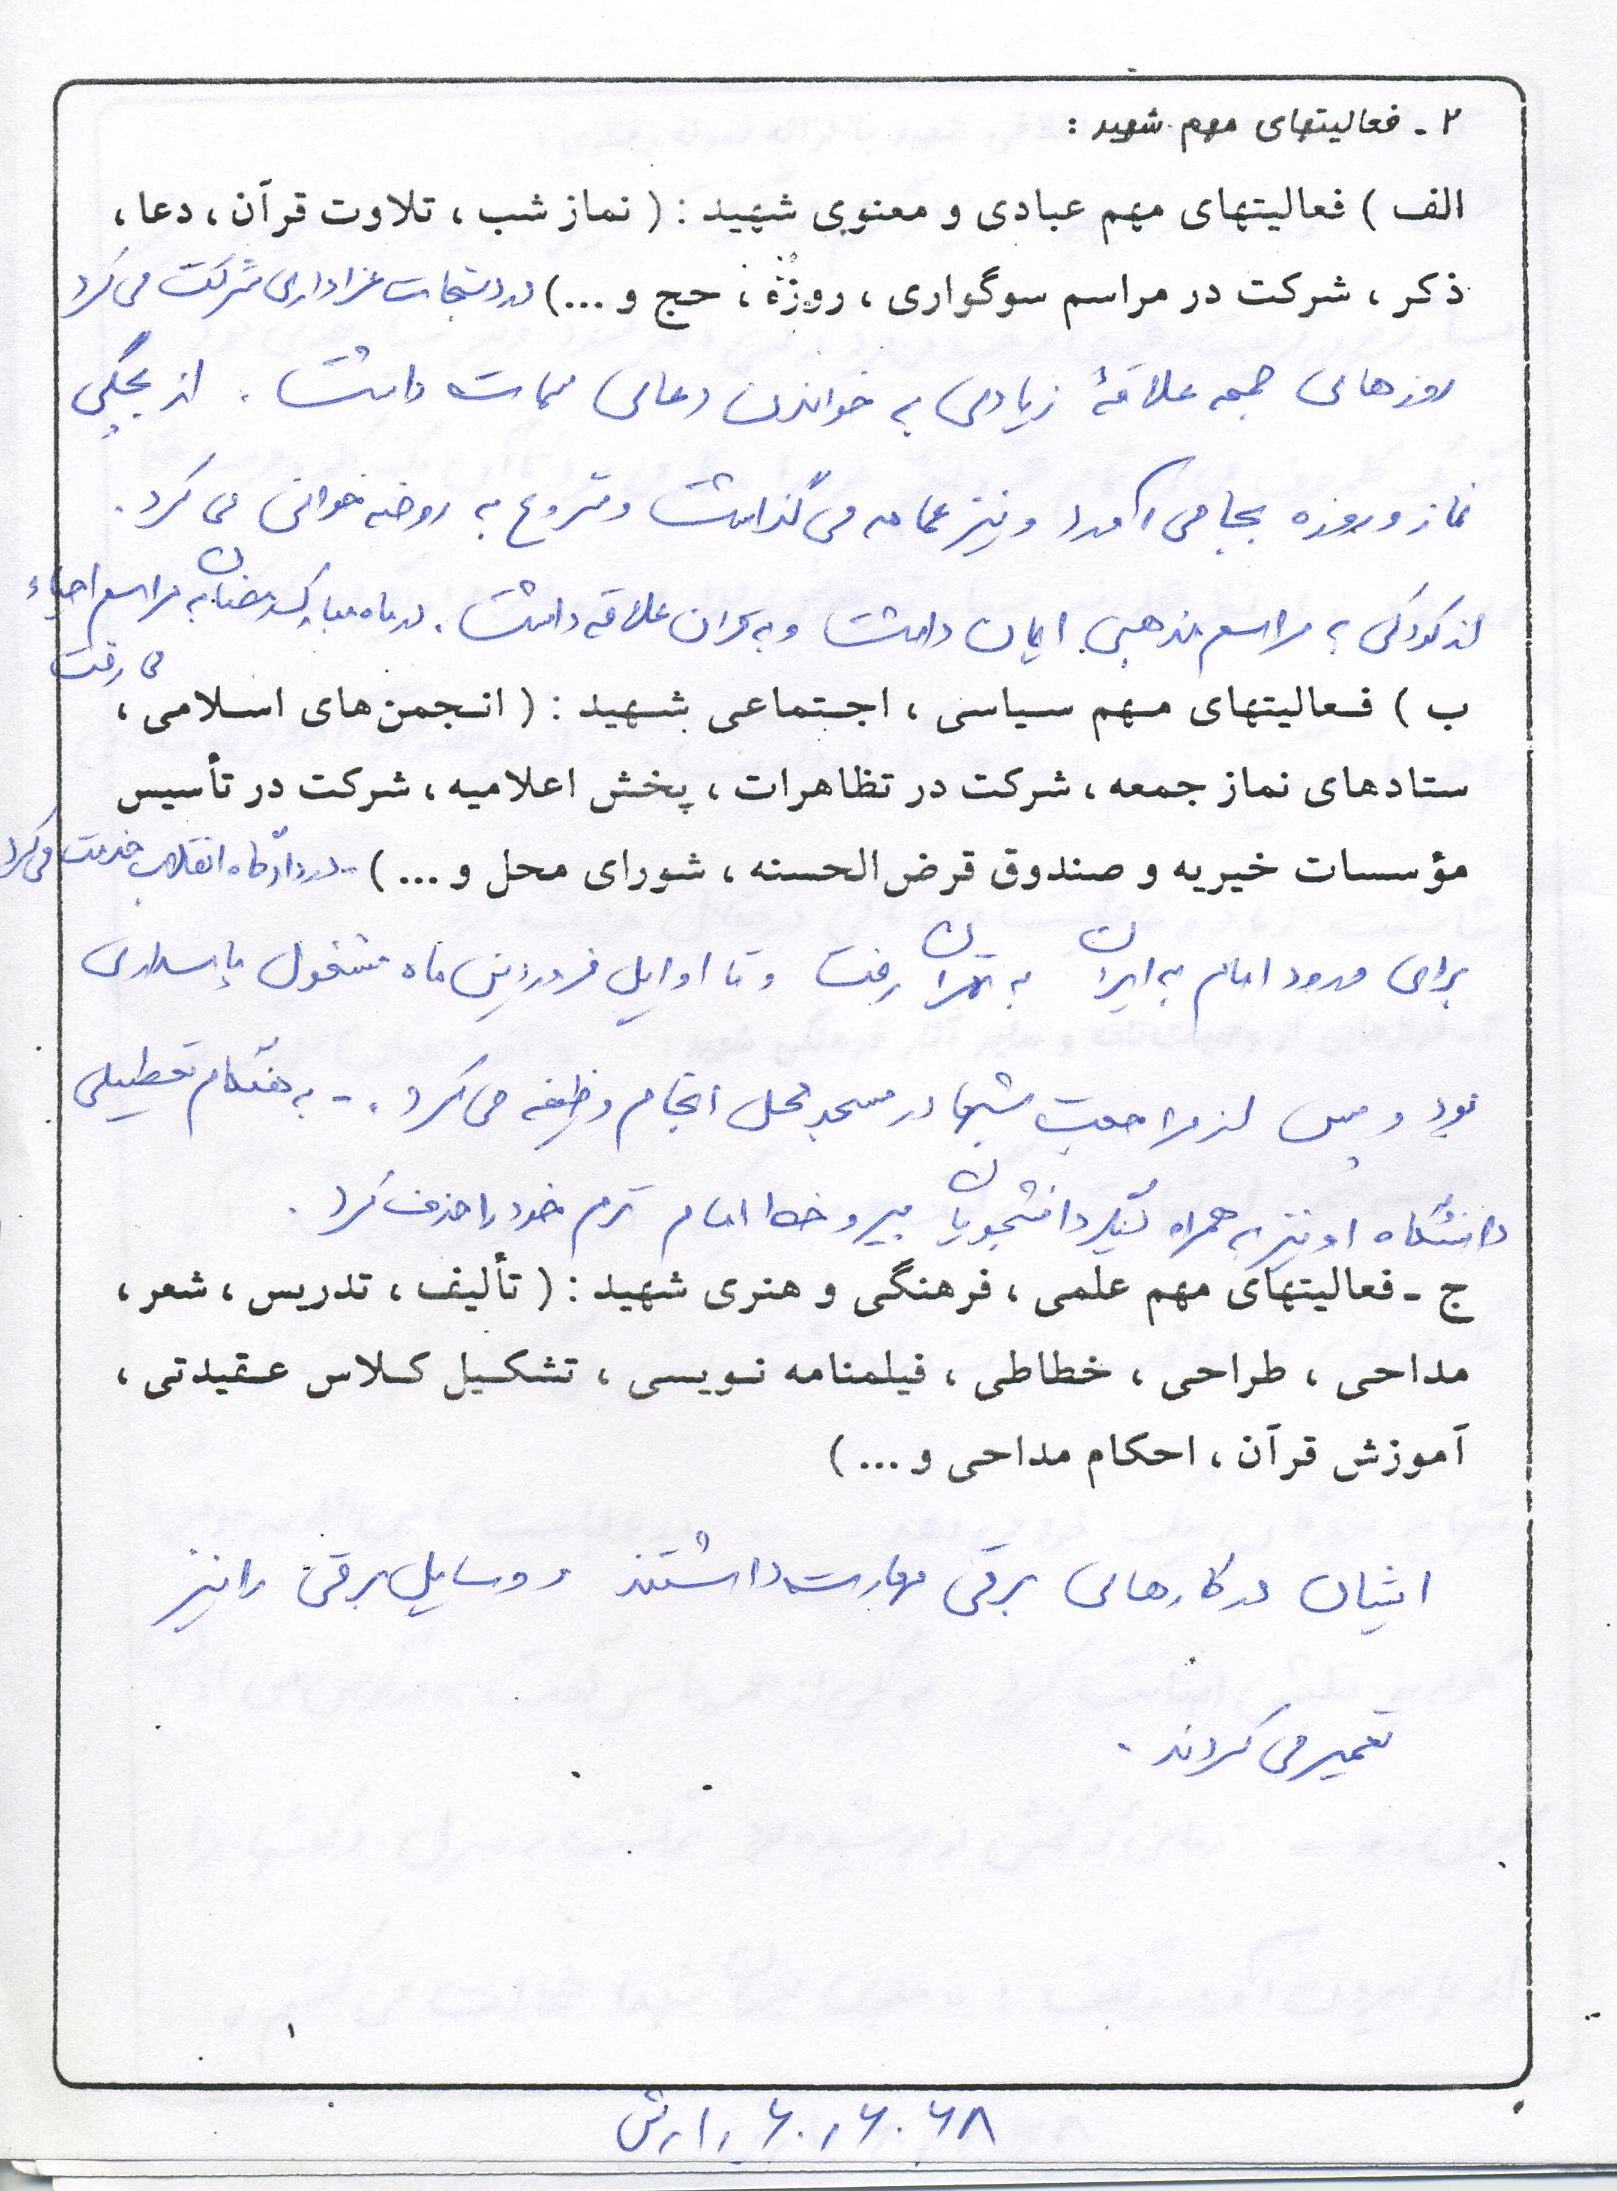 ۲ - فعالیتهای مهم شهید :
الف ) فعالیتهای مهم عبادی و معنوی شهید : ( نماز شب ، تلاوت قرآن ، دعا ،
ذکر ، شرکت در مراسم سوگواری ، روزه ، حج و ... ) در دستجات عزاداری شرکت می کرد
روزهای جمعه علاقهٔ زیادی به خواندن دعای سمات داشت . از بچگی
نماز و روزه بجا می آورد و نیز عمامه می گذاشت و شروع به روضه خوانی می کرد .
از کودکی به مراسم مذهبی ایمان داشت و به قرآن علاقه داشت . در ماه مبارک رمضان به مراسم احیاء
می رفت
ب ) فعالیتهای مهم سیاسی ، اجتماعی شهید : ( انجمن های اسلامی ،
ستادهای نماز جمعه ، شرکت در تظاهرات ، پخش اعلامیه ، شرکت در تأسیس
مؤسسات خیریه و صندوق قرض الحسنه ، شورای محل و ... ) - در دادگاه انقلاب خدمت می کرد
برای ورود امام به ایران به تهران رفت و تا اوایل فروردین ماه مشغول پاسداری
بود و پس از مراجعت شبها در مسجد محل انجام وظیفه می کرد . - به هنگام تعطیلی
دانشگاه او نیز به همراه دیگر دانشجویان پیرو خط امام ترم خود را حذف کرد .
ج - فعالیتهای مهم علمی ، فرهنگی و هنری شهید : ( تألیف ، تدریس ، شعر ،
مداحی ، طراحی ، خطاطی ، فیلمنامه نویسی ، تشکیل کلاس عقیدتی ،
آموزش قرآن ، احکام مداحی و ... )
ایشان در کارهای برقی مهارت داشتند و وسایل برقی را نیز
تعمیر می کردند .